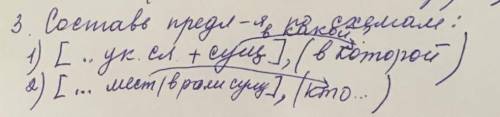 3. Составь предл-я по схемам:
в какой
1) [ .. ук. сл. + сущ ], ( в которой )
2) [ ... мест ( в роли сущ ], ( кто ... )